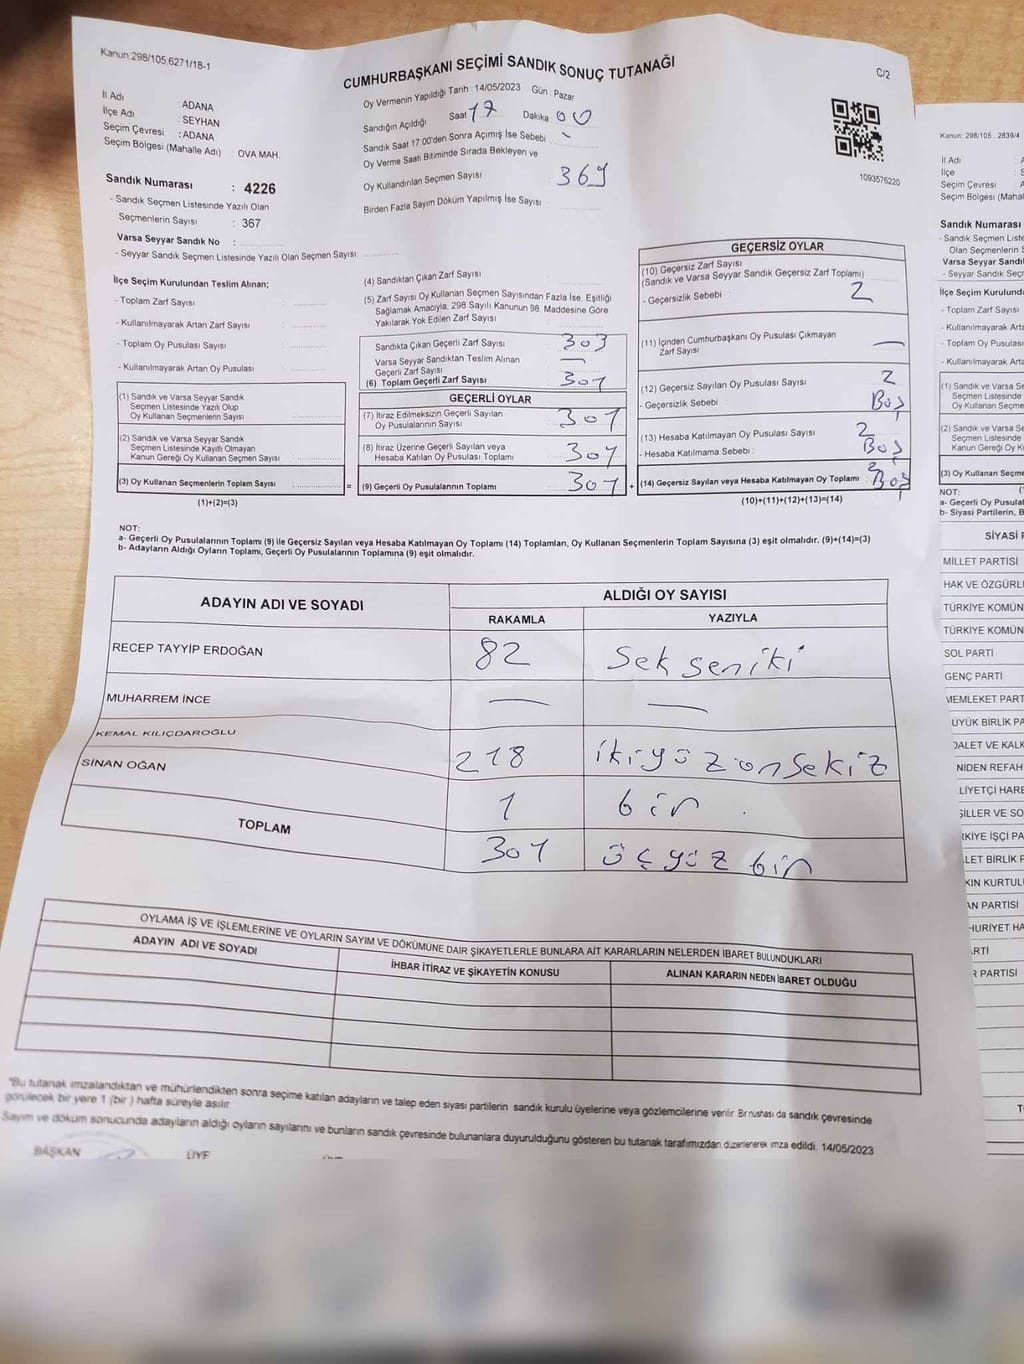 Kanun:298/105.6271/18-1
CUMHURBAŞKANI SEÇİMİ SANDIK SONUÇ TUTANAĞI
C/2
İl Adı : ADANA
İlçe Adı : SEYHAN
Seçim Çevresi : ADANA
Seçim Bölgesi (Mahalle Adı) : OVA MAH.
Sandık Numarası : 4226
- Sandık Seçmen Listesinde Yazılı Olan
Seçmenlerin Sayısı : 367
Varsa Seyyar Sandık No :
- Seyyar Sandık Seçmen Listesinde Yazılı Olan Seçmen Sayısı:
Oy Vermenin Yapıldığı Tarih : 14/05/2023 Gün : Pazar
Sandığın Açıldığı Saat 17 Dakika 00
Sandık Saat 17.00'den Sonra Açımış İse Sebebi : -
Oy Verme Saati Bitiminde Sırada Bekleyen ve
Oy Kullandırılan Seçmen Sayısı 369
Birden Fazla Sayım Döküm Yapılmış İse Sayısı :
1093576220
İlçe Seçim Kurulundan Teslim Alınan;
- Toplam Zarf Sayısı :
- Kullanılmayarak Artan Zarf Sayısı :
- Toplam Oy Pusulası Sayısı :
- Kullanılmayarak Artan Oy Pusulası :
(1) Sandık ve Varsa Seyyar Sandık
Seçmen Listesinde Yazılı Olup
Oy Kullanan Seçmenlerin Sayısı :
(2) Sandık ve Varsa Seyyar Sandık
Seçmen Listesinde Kayıtlı Olmayan
Kanun Gereği Oy Kullanan Seçmen Sayısı :
(3) Oy Kullanan Seçmenlerin Toplam Sayısı : =
(1)+(2)=(3)
(4) Sandıktan Çıkan Zarf Sayısı :
(5) Zarf Sayısı Oy Kullanan Seçmen Sayısından Fazla İse, Eşitliği
Sağlamak Amacıyla, 298 Sayılı Kanunun 98. Maddesine Göre
Yakılarak Yok Edilen Zarf Sayısı :
Sandıkta Çıkan Geçerli Zarf Sayısı : 303
Varsa Seyyar Sandıktan Teslim Alınan
Geçerli Zarf Sayısı : —
(6) Toplam Geçerli Zarf Sayısı : 301
GEÇERLİ OYLAR
(7) İtiraz Edilmeksizin Geçerli Sayılan
Oy Pusulalarının Sayısı : 301
(8) İtiraz Üzerine Geçerli Sayılan veya
Hesaba Katılan Oy Pusulası Toplamı : 301
(9) Geçerli Oy Pusulalarının Toplamı : 301 +
GEÇERSİZ OYLAR
(10) Geçersiz Zarf Sayısı
(Sandık ve Varsa Seyyar Sandık Geçersiz Zarf Toplamı)
- Geçersizlik Sebebi : 2
(11) İçinden Cumhurbaşkanı Oy Pusulası Çıkmayan
Zarf Sayısı : —
(12) Geçersiz Sayılan Oy Pusulası Sayısı : 2
- Geçersizlik Sebebi : Boş
(13) Hesaba Katılmayan Oy Pusulası Sayısı : 2
- Hesaba Katılmama Sebebi : Boş
(14) Geçersiz Sayılan veya Hesaba Katılmayan Oy Toplamı : 2 Boş
(10)+(11)+(12)+(13)=(14)
NOT:
a- Geçerli Oy Pusulalarının Toplamı (9) ile Geçersiz Sayılan veya Hesaba Katılmayan Oy Toplamı (14) Toplamları, Oy Kullanan Seçmenlerin Toplam Sayısına (3) eşit olmalıdır. (9)+(14)=(3)
b- Adayların Aldığı Oyların Toplamı, Geçerli Oy Pusulalarının Toplamına (9) eşit olmalıdır.
ADAYIN ADI VE SOYADI ALDIĞI OY SAYISI
RAKAMLA YAZIYLA
RECEP TAYYİP ERDOĞAN 82 Sekseniki
MUHARREM İNCE — —
KEMAL KILIÇDAROĞLU 218 ikiyüzonsekiz
SİNAN OĞAN 1 bir
TOPLAM 301 üçyüz bir
OYLAMA İŞ VE İŞLEMLERİNE VE OYLARIN SAYIM VE DÖKÜMÜNE DAİR ŞİKAYETLERLE BUNLARA AİT KARARLARIN NELERDEN İBARET BULUNDUKLARI
ADAYIN ADI VE SOYADI İHBAR İTİRAZ VE ŞİKAYETİN KONUSU ALINAN KARARIN NEDEN İBARET OLDUĞU
*Bu tutanak imzalandıktan ve mühürlendikten sonra seçime katılan adayların ve talep eden siyasi partilerin sandık kurulu üyelerine veya gözlemcilerine verilir. Bir nushası da sandık çevresinde
görülecek bir yere 1 (bir) hafta süreyle asılır.
Sayım ve döküm sonucunda adayların aldığı oyların sayılarını ve bunların sandık çevresinde bulunanlara duyurulduğunu gösteren bu tutanak tarafımızdan düzenlenerek imza edildi. 14/05/2023
BAŞKAN ÜYE
Kanun: 298/105 : 2839/4
İl Adı
İlçe
Seçim Çevresi
Seçim Bölgesi (Mahal
Sandık Numarası
- Sandık Seçmen Liste
Olan Seçmenlerin S
Varsa Seyyar Sandık
- Seyyar Sandık Seç
İlçe Seçim Kurulund
- Toplam Zarf Sayısı
- Kullanılmayarak Arta
- Toplam Oy Pusulası
- Kullanılmayarak Arta
(1) Sandık ve Varsa Se
Seçmen Listesinde
Oy Kullanan Seçme
(2) Sandık ve Varsa Se
Seçmen Listesinde K
Kanun Gereği Oy K
(3) Oy Kullanan Seçme
NOT:
a- Geçerli Oy Pusula
b- Siyasi Partilerin, B
SİYASİ
MİLLET PARTİSİ
HAK VE ÖZGÜRL
TÜRKİYE KOMÜN
TÜRKİYE KOMÜN
SOL PARTİ
GENÇ PARTİ
MEMLEKET PART
ÜYÜK BİRLİK PA
DALET VE KALK
NİDEN REFAH
LİYETÇİ HARE
ŞİLLER VE SO
RKİYE İŞÇİ PA
LET BİRLİK P
KIN KURTUL
AN PARTİSİ
HURİYET HA
RTİ
R PARTİSİ